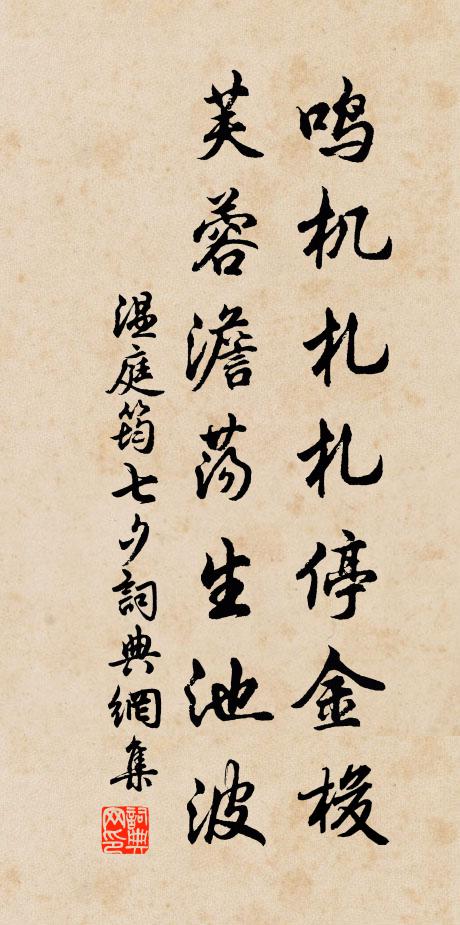 鸣机札札停金梭
芙蓉澹荡生池波
温庭筠七夕詞典網集
詞典网印